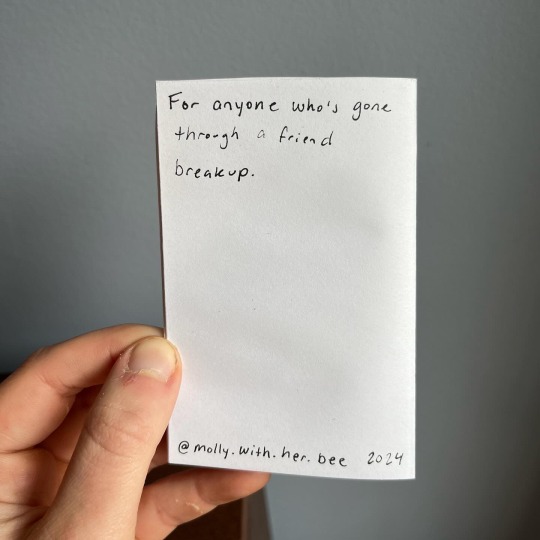 For anyone who's gone
through a friend
breakup.
@molly.with.her.bee 2024